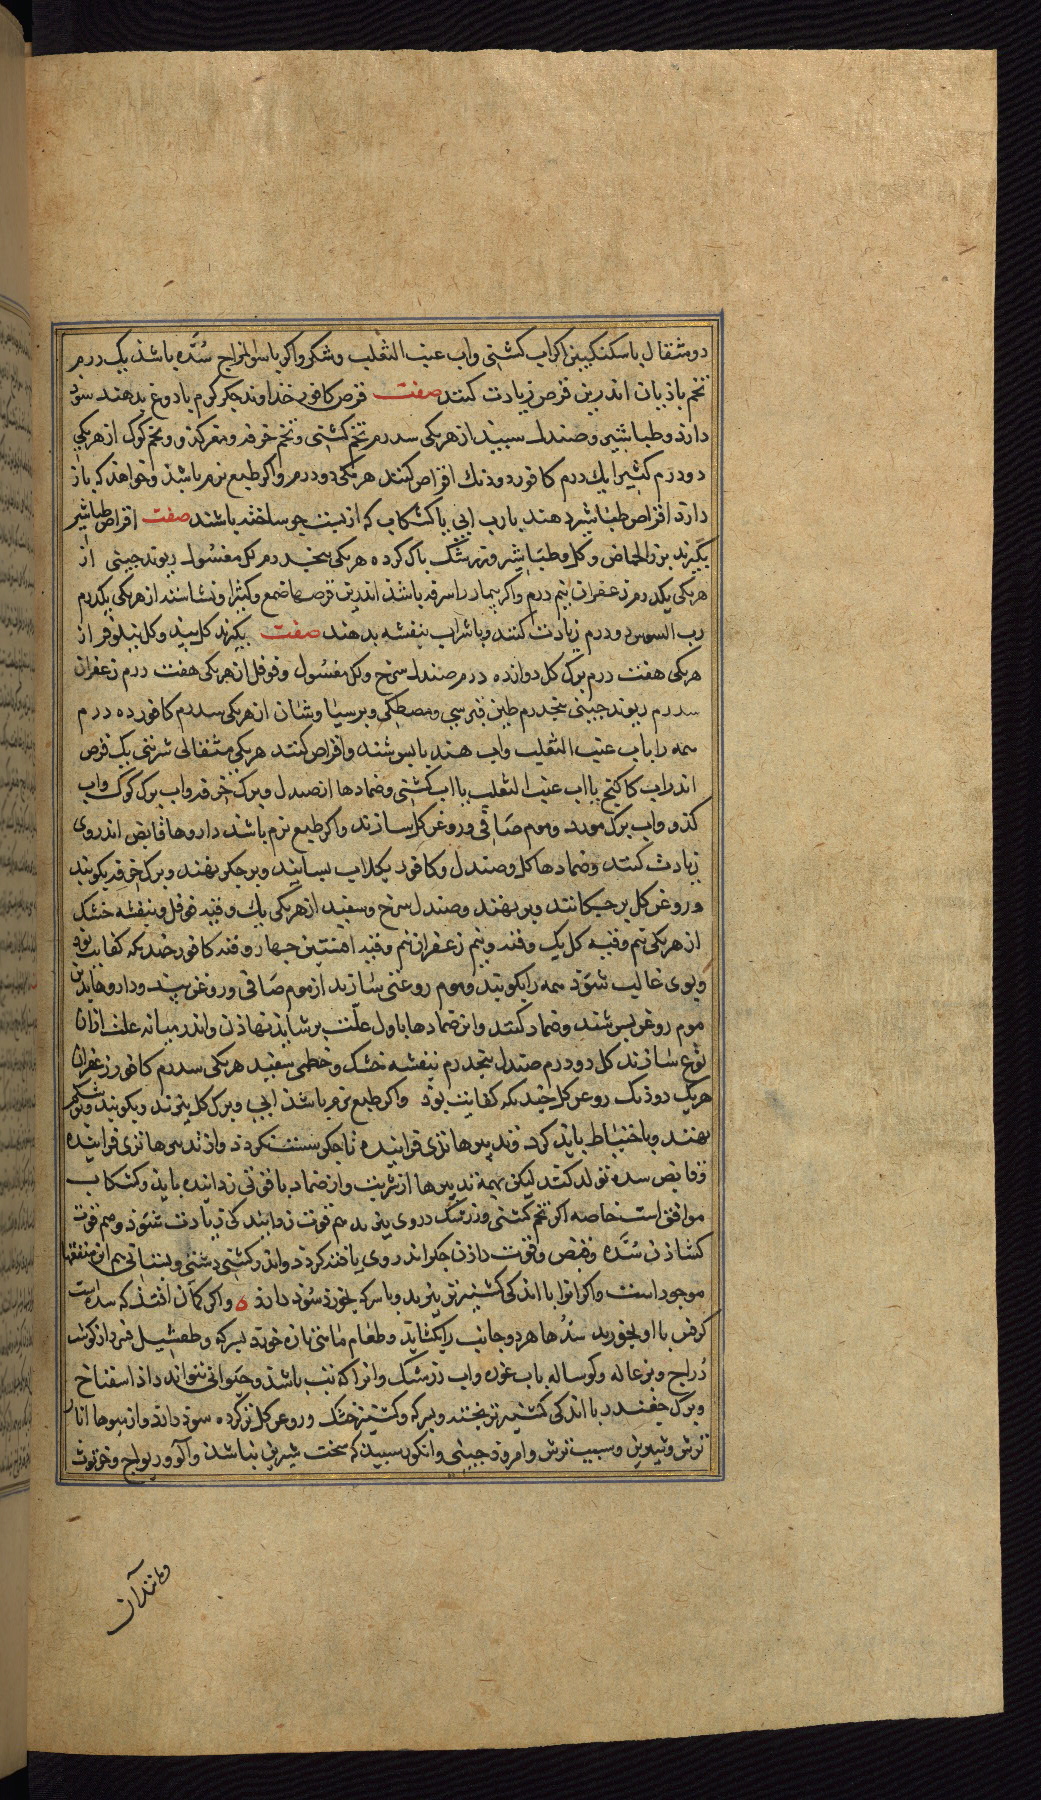 دو مثقال یا سکنکبین اکر اب کشتی واب عنب الثعلب و شکر واکر با سوالمزاج سُدّه باشذ یک درم
تخم باذیان اندرین قرص زیادت کنند صفت قرص کافور خذاوند جکر کرم با دوغ بدهند سوذ
دارذ وطباشیر و صندل سبید از هر یکی سه درم تخم کشتی و تخم خرفه و مغز کذو و تخم کوک از هر یکی
دو درم کتیرا یک درم کافور دودنک اقراص کنند هر یکی دو درم واکر طبع نرم باشذ و خواهذ که باز
دارذ اقراص طباشیر دهند با رب ابی یا کشکاب که از بست جو ساخته باشند صفت اقراص طباشیر
بکیرند بزرالحماض و کل و طباشیر و زرشک باک کرده هر یکی بنجدرم کل مغسول ریوند جینی از
هر یکی یکدرم زعفران نیم درم واکر بیمار را سرفه باشذ اندرین قرصها صمغ و کتیرا و نشاسته از هر یکی یکدرم
رب السوس دو درم زیادت کنند و با شراب بنفشه بدهند صفت بکیرند کل سبید و کل نیلوفر از
هر یکی هفت درم برک کل دوازده درم صندل سرخ و کل مغسول و فوفل از هر یکی هفت درم زعفران
سه درم ریوند جینی بنجدرم طین قبرسی و مصطکی و برسیاوشان از هر یکی سه درم کافور ده درم
همه را باب عنب الثعلب واب هندبا بسرشند و اقراص کنند هر یکی مثقالی شربتی یک قرص
اندر اب کاکنج یا اب عنب الثعلب یا اب کشتی و ضمادها از صندل و برک خرفه و اب برک کوک واب
کذو واب برک مورد و موم صافی و روغن کل سازند واکر طبع نرم باشذ داروها قابض اندروی
زیادت کنند و ضمادها کل و صندل و کافور بکلاب بسایند و بر جکر نهند و برک خرفه بکوبند
و روغن کل بر جکانند و بر نهند و صندل سرخ و سفید از هر یکی یک وقیه فوفل و بنفشه خشک
از هر یکی نیم وقیه کل یک وقیه و نیم زعفران نیم وقیه افسنتین جهار وقیه کافور جندانکه کفایت بوذ
و بوی غالب شوذ همه را بکوبند و موم روغنی سازند از موم صافی و روغن بید و داروها بدین
موم روغن بسرشند و ضماد کنند و این ضمادها باول علت بر شاید نهاذن و اندر میانه علت ازان
نوع سازند کل دو درم صندل بنجدرم بنفشه خشک و خطمی سفید هر یکی سه درم کافور زعفران
هر یک دو دنک روغن کل جندانکه کفایت بوذ واکر طبع نرم باشذ ابی و برک کل بپزند و بکوبند و بر شکم
نهند و با حتیاط باید کرد و تدبیرها تری فزاینده تا جکر سست نکردد و از تدبیرها تری فزاینده
و قابض سده تولد کند لیکن بهمه تدبیرها از شربت و از ضماد با قوتی زداینده باید و کشکاب
موافق است خاصه اکر تخم کشتی و زرشک در وی بپزند هم قوت زدایندکی زیادت شوذ و هم قوت
کشاذن سُدّه و قبض و قوت داذن جکر اندر وی یافته کردد و اندر کشتی دشتی و بستانی هم این منفعتها
موجود است واکر انرا با اندکی کشنیز تر بپزند و با سرکه بخورد سوذ دارذ ه واکر کمان افتذ که سده است
کرفس با او بخورند سدها هر دو جانب را بکشاید و طعام ماهی تازه خورد بسرکه و طفشیل و قریذ از کوشت
درّاج و بزغاله و کوساله باب غوره واب زرشک وانرا که تب باشذ و حیوانی نتوانذ داذ اسفناخ
و برک جغندر با اندکی کشنیز تر بپزند و بسرکه و کشنیز خشک و روغن کل تر کرده سوذ دارذ و از میوها انار
ترش و شیرین و سیب ترش و امرود جینی و انکور سبید که سخت شیرین نباشذ و آلو و ریواج و خرتوت
و مانند آن